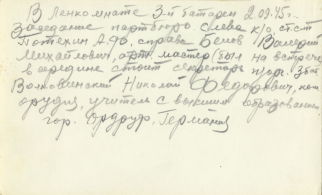 В Ленкомнате 3й батареи 2.09.45г.
Заседание партбюро слева к/о, ст. с-т
Потехин А.Ф., справа Белов Валерий
Михайлович, арт. мастер (был на встрече
в середине стоит секретарь п/орг. 3 бат
Николай Федорович, ком
орудия, учитель с высшим образованием
гор. Ордруф, Германия